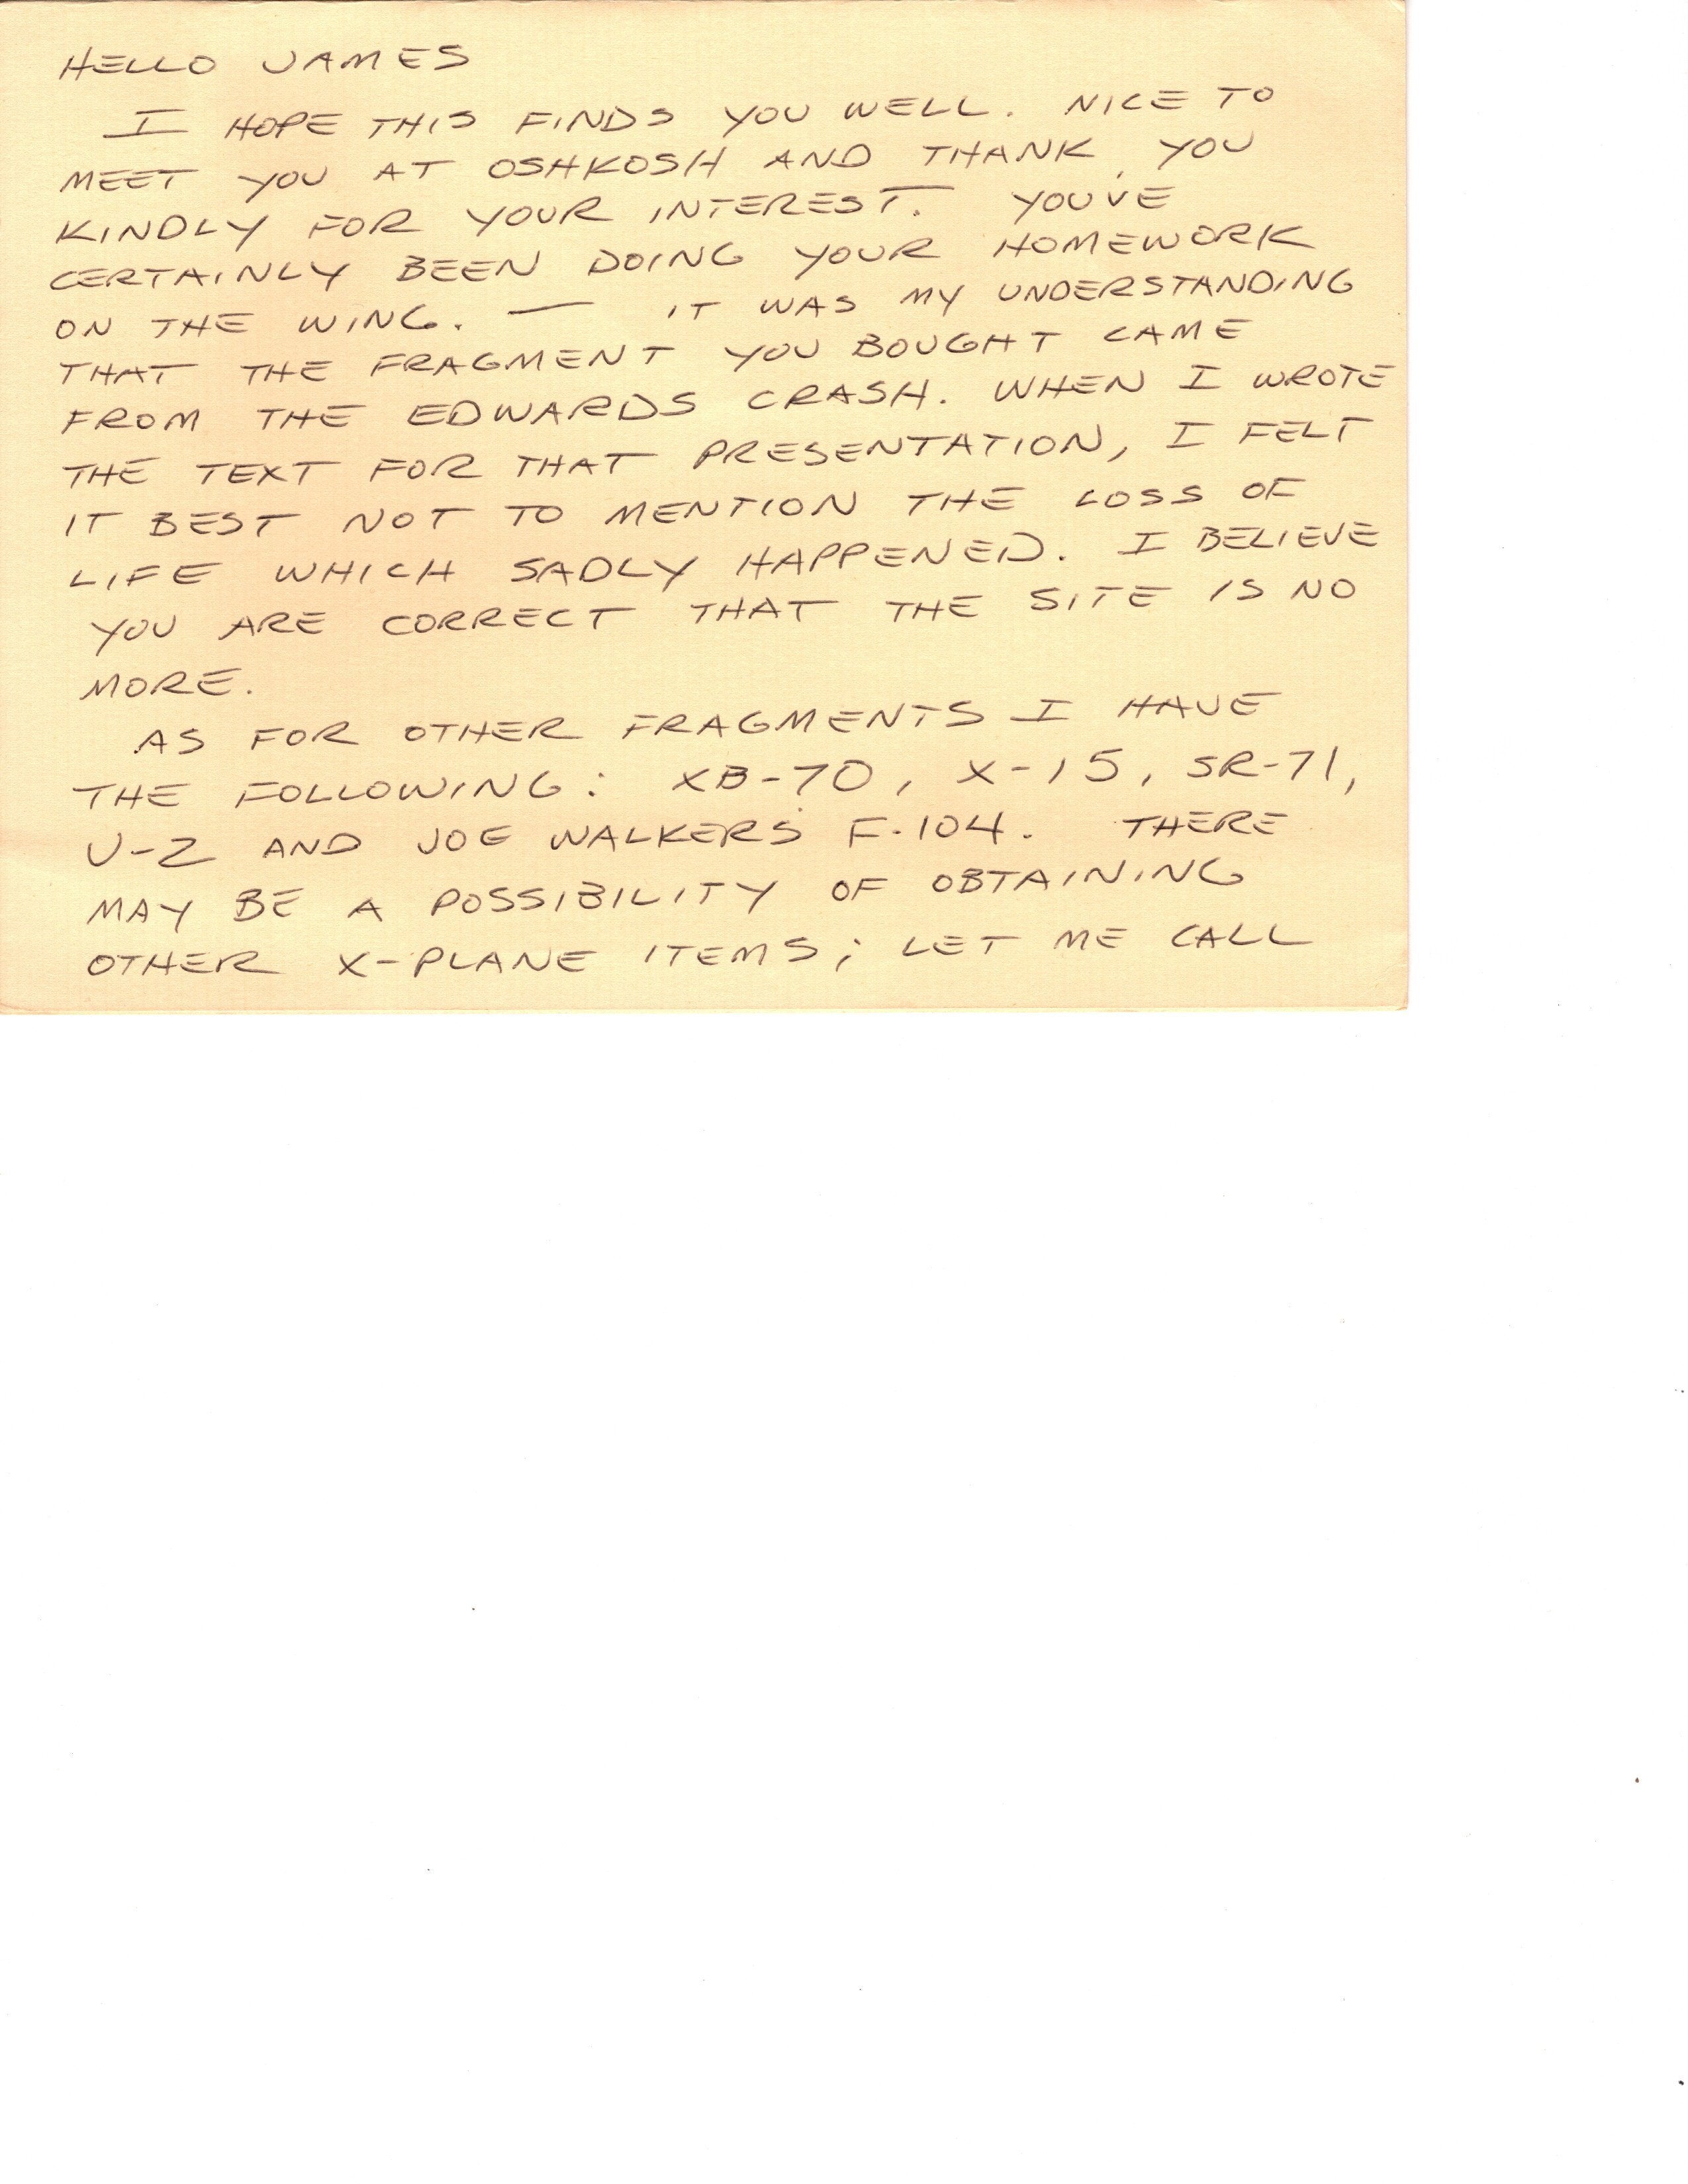 HELLO JAMES
I HOPE THIS FINDS YOU WELL. NICE TO
MEET YOU AT OSHKOSH AND THANK YOU
KINDLY FOR YOUR INTEREST. YOU'VE
CERTAINLY BEEN DOING YOUR HOMEWORK
ON THE WING. — IT WAS MY UNDERSTANDING
THAT THE FRAGMENT YOU BOUGHT CAME
FROM THE EDWARDS CRASH. WHEN I WROTE
THE TEXT FOR THAT PRESENTATION, I FELT
IT BEST NOT TO MENTION THE LOSS OF
LIFE WHICH SADLY HAPPENED. I BELIEVE
YOU ARE CORRECT THAT THE SITE IS NO
MORE.
AS FOR OTHER FRAGMENTS I HAVE
THE FOLLOWING: XB-70, X-15, SR-71,
U-2 AND JOE WALKERS F-104. THERE
MAY BE A POSSIBILITY OF OBTAINING
OTHER X-PLANE ITEMS; LET ME CALL